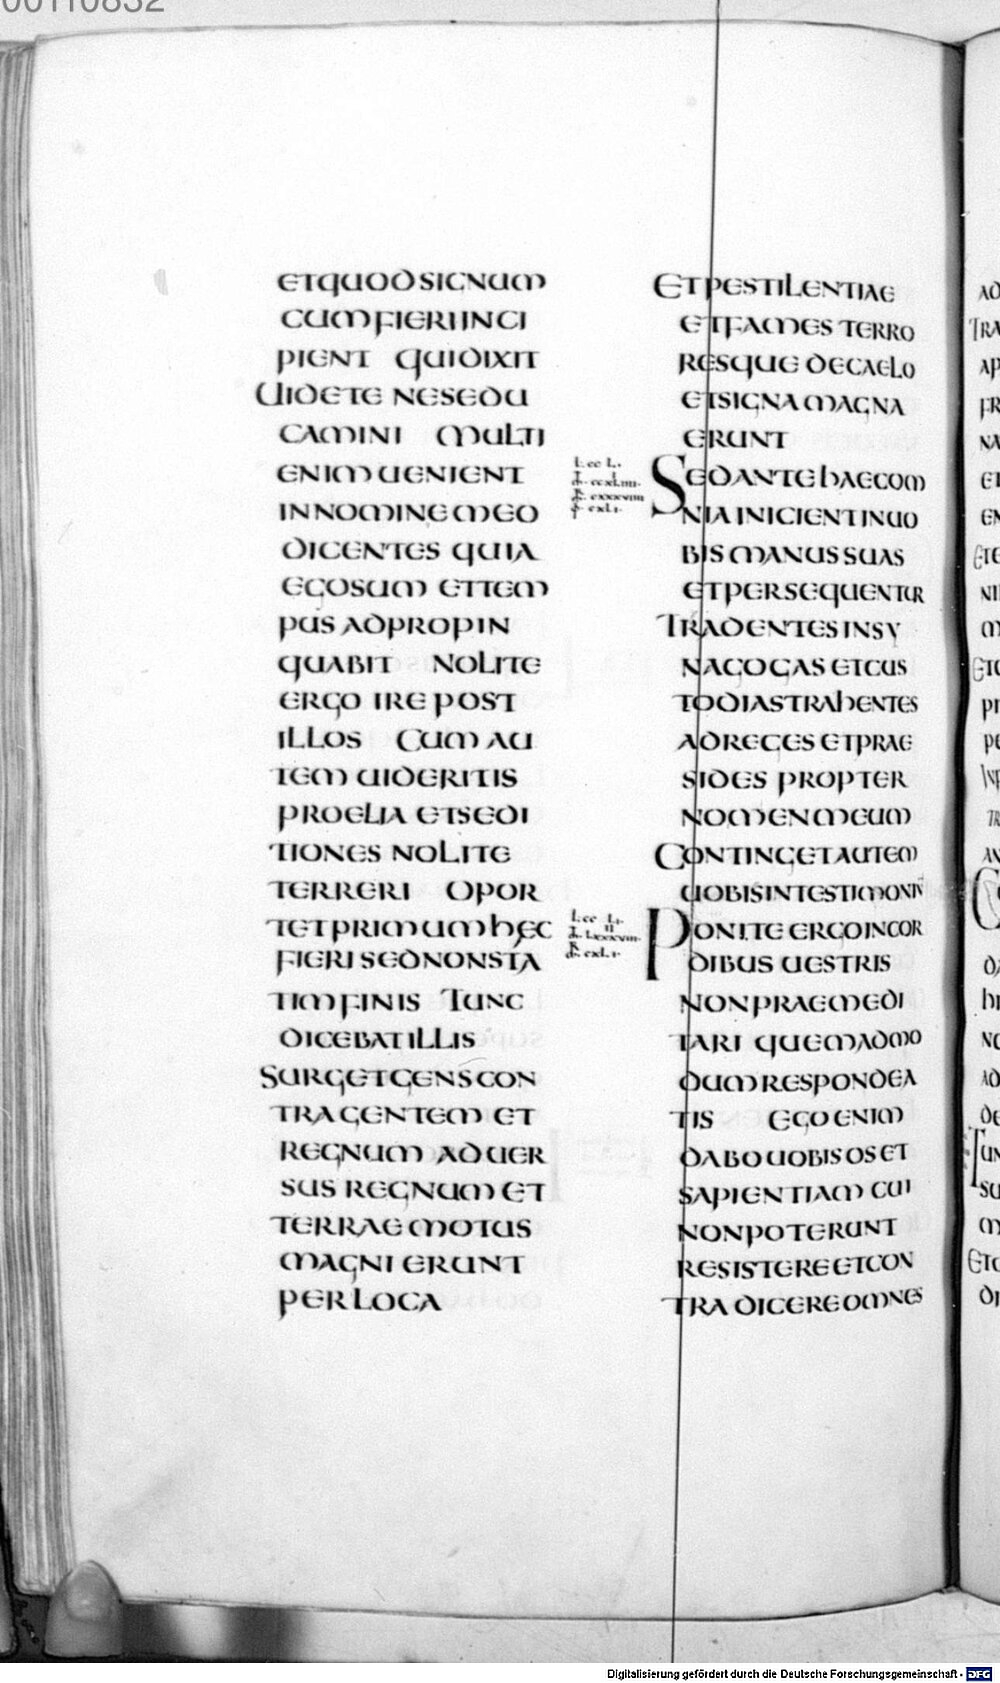 00110832
ETQUODSIGNUM
CUMFIERIINCI
PIENT QUIDIXIT
UIDETE NESEDU
CAMINI MULTI
ENIMUENIENT
INNOMINEMEO
DICENTES QUIA
EGOSUM ETTEM
PUSADPROPIN
QUABIT NOLITE
ERGO IREPOST
ILLOS CUMAU
TEMUIDERITIS
PROELIA ETSEDI
TIONES NOLITE
TERRERI OPOR
TETPRIMUMHEC
FIERISEDNONSTA
TIMFINIS TUNC
DICEBATILLIS
SURGETGENSCON
TRAGENTEM ET
REGNUM ADUER
SUS REGNUMET
TERRAEMOTUS
MAGNIERUNT
PERLOCA
ETPESTILENTIAE
ETFAMES TERRO
RESQUE DECAELO
ETSIGNAMAGNA
ERUNT
SEDANTEHAECOM
NIAINICIENTINUO
BISMANUSSUAS
ETPERSEQUENTUR
TRADENTESINSY
NAGOGASETCUS
TODIASTRAHENTES
ADREGESETPRAE
SIDES PROPTER
NOMENMEUM
CONTINGETAUTEM
UOBISINTESTIMONIU
PONITEERGOINCOR
DIBUS UESTRIS
NONPRAEMEDI
TARI QUEMADMO
DUMRESPONDEA
TIS EGOENIM
DABOUOBISOSET
SAPIENTIAM CUI
NONPOTERUNT
RESISTEREETCON
TRADICEREOMNES
Digitalisierung gefördert durch die Deutsche Forschungsgemeinschaft - DFG